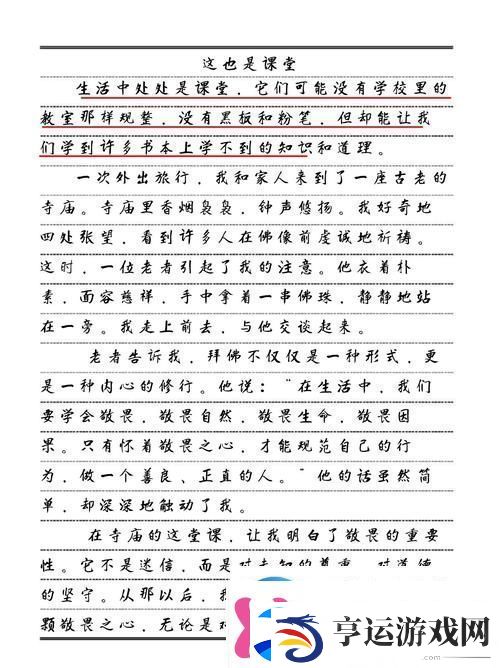 这也是课堂
生活中处处是课堂，它们可能没有学校里的
教室那样规整，没有黑板和粉笔，但却能让我
们学到许多书本上学不到的知识和道理。
一次外出旅行，我和家人来到了一座古老的
寺庙。寺庙里香烟袅袅，钟声悠扬。我好奇地
四处张望，看到许多人在佛像前虔诚地祈祷。
这时，一位老者引起了我的注意。他衣着朴
素，面容慈祥，手中拿着一串佛珠，静静地站
在一旁。我走上前去，与他交谈起来。
老者告诉我，拜佛不仅仅是一种形式，更
是一种内心的修行。他说：“在生活中，我们
要学会敬畏，敬畏自然，敬畏生命，敬畏因
果。只有怀着敬畏之心，才能规范自己的行
为，做一个善良、正直的人。”他的话虽然简
单，却深深地触动了我。
在寺庙的这堂课，让我明白了敬畏的重要
性。它不是迷信，而是对未知的尊重，对道德
的坚守。从那以后，我
颗敬畏之心，无论是对
亨运游戏网